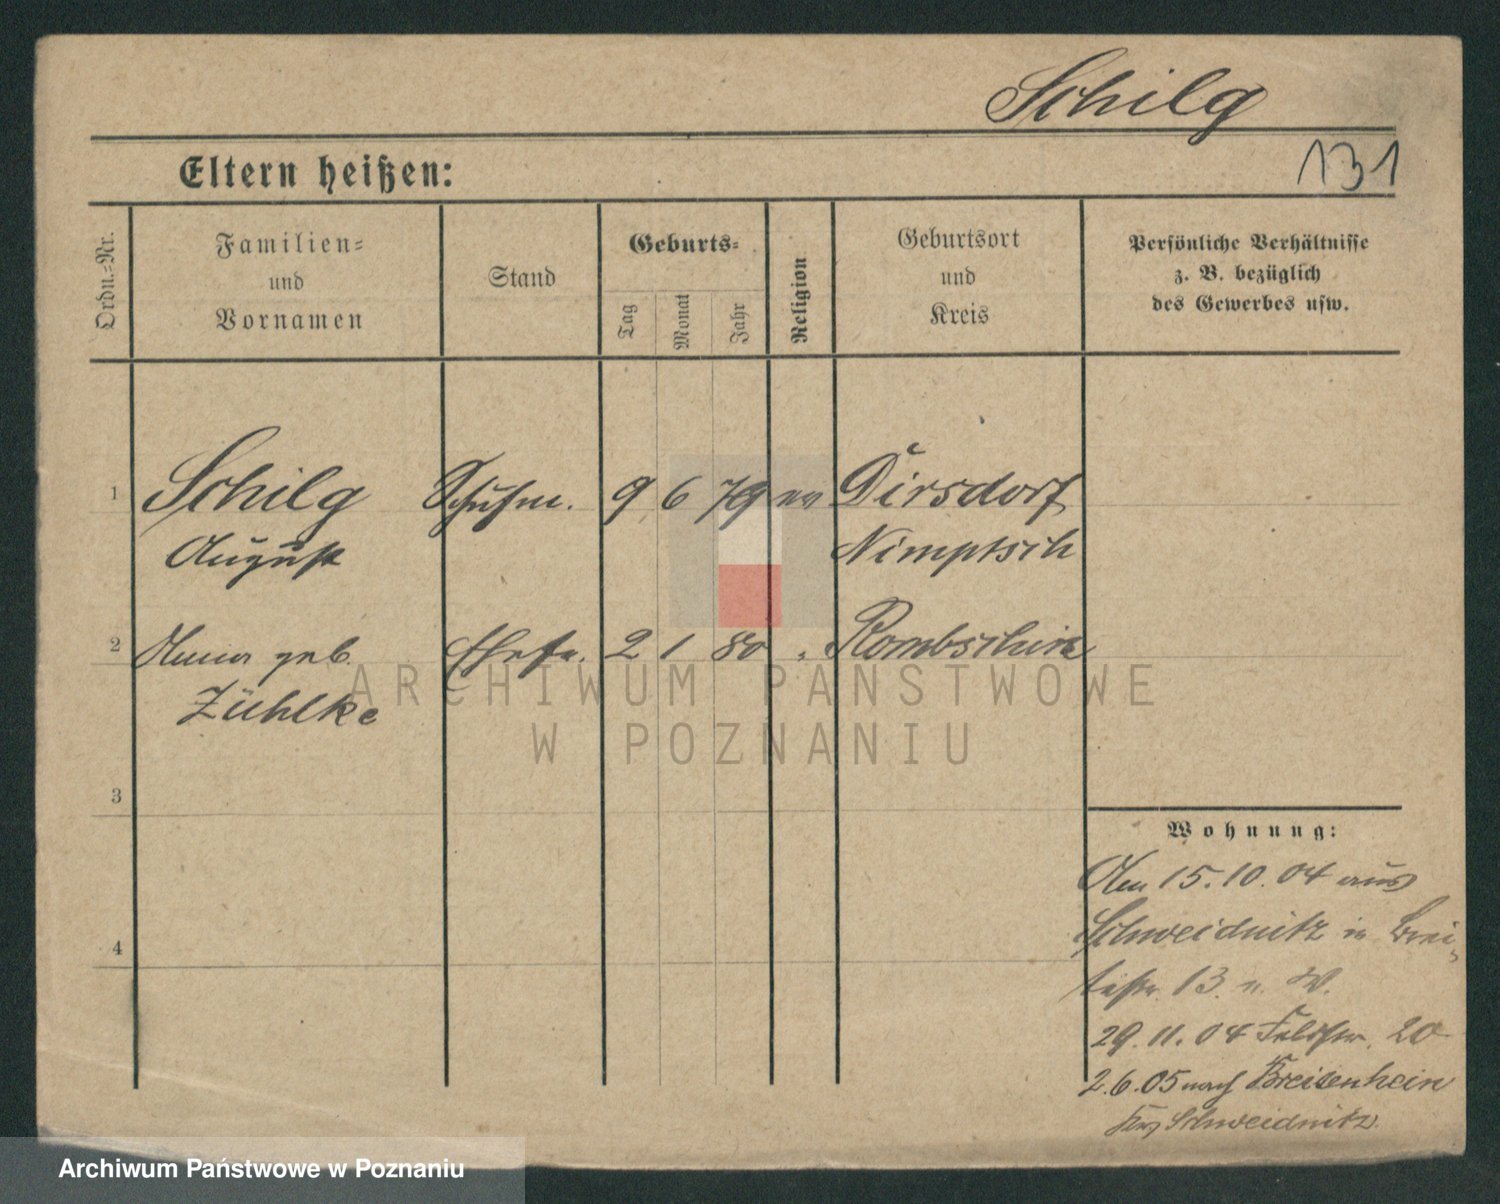 Schilg
131
Eltern heißen:
Ordn.-Nr.
Familien-
und
Vornamen
Stand
Geburts-
Tag
Monat
Jahr
Religion
Geburtsort
und
Kreis
Persönliche Verhältnisse
z. B. bezüglich
des Gewerbes usw.
1 Schilg Schuhm. 9 6 79 ev Dirsdorf
August Nimptsch
2 Anna geb. Ehefr. 2 1 80 " Rombschin
Zühlke
3
4
Wohnung:
Am 15.10.04 aus
Schweidnitz in Brei-
testr. 13 n. W.
29.11.04 Feldstr. 20
2.6.05 nach Breitenhein
Krs Schweidnitz.
ARCHIWUM PAŃSTWOWE
W POZNANIU
Archiwum Państwowe w Poznaniu